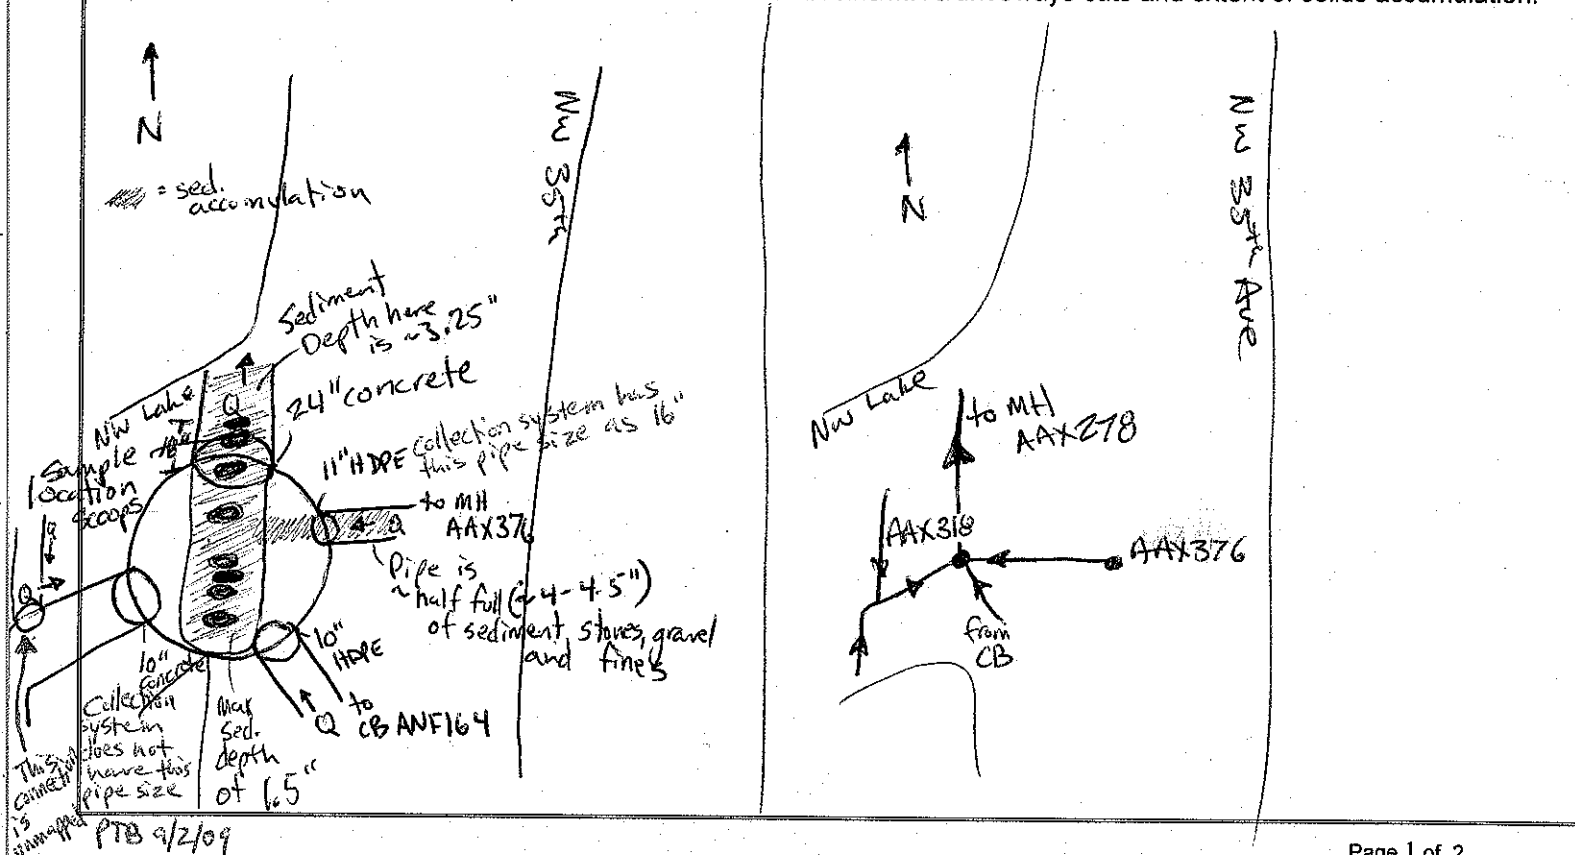 and extent of solids accumulation.
N
= sed.
accumulation
NW 35th
Sediment
Depth here
is ~3.25"
24" concrete
NW Lake
Q
Sample
location
scoops
11" HDPE
collection system has
this pipe size as 16"
to MH
AAX376
Q
Pipe is
~half full (~4-4.5")
of sediment, stones, gravel
and fines
10"
HDPE
to
CB ANF164
Q
Q
Q
10"
concrete
Collection
system
does not
have this
pipe size
Max
sed.
depth
of 1.5"
This
connection
is
unmapped
PTB 9/2/09
N
NW 35th Ave
NW Lake
to MH
AAX278
AAX318
AAX376
from
CB
Page 1 of 2